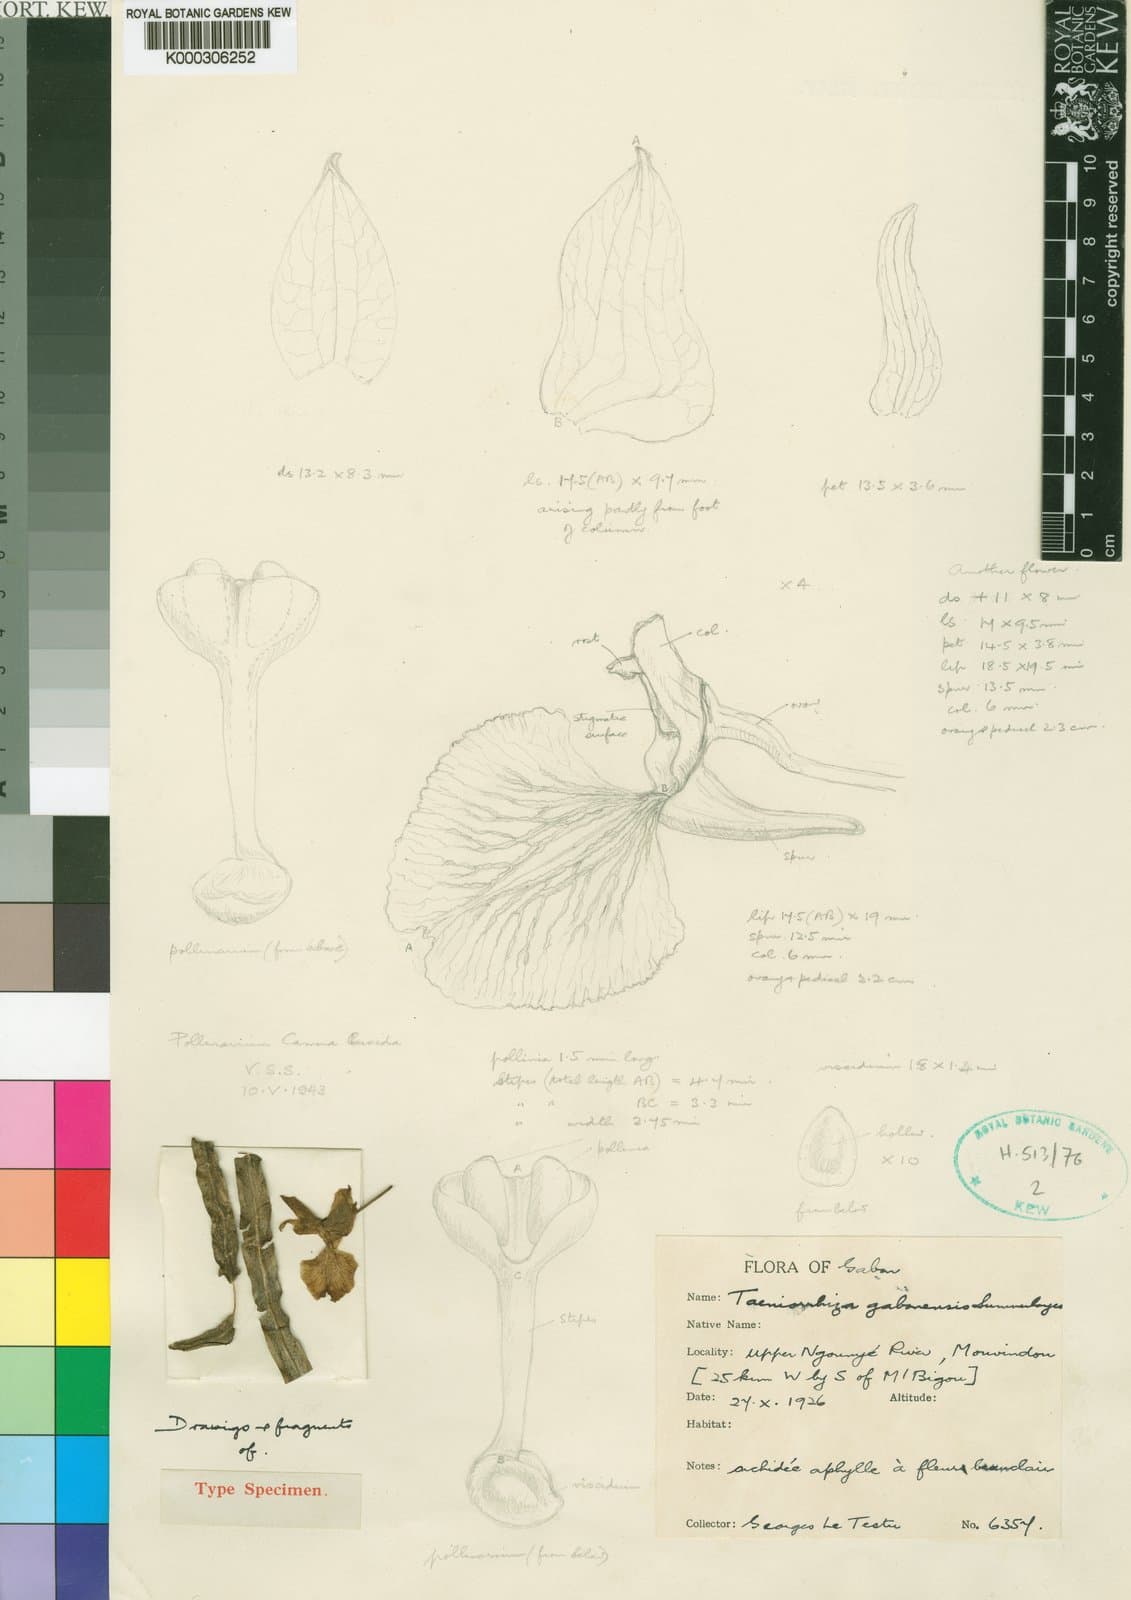 HORT. KEW.
ROYAL BOTANIC GARDENS KEW
K000306252
ROYAL
BOTANIC
GARDENS
KEW
copyright reserved
0 1 2 3 4 5 6 7 8 9 10
cm
A
B
ds 13.2 x 8.3 mm
ls. 17.5 (AB) x 9.7 mm
arising partly from foot
of column
pet 13.5 x 3.6 mm
x 4
Another flower
ds + 11 x 8 mm
ls 17 x 9.5 mm
pet 14.5 x 3.8 mm
lip 18.5 x 19.5 mm
spur 13.5 mm.
col. 6 mm.
ovary & pedicel 2.3 cm.
rost.
col.
stigmatic
surface
ovary
B
spur
A
lip 17.5 (AB) x 19 mm.
spur 12.5 mm
col. 6 mm.
ovary & pedicel 3.2 cm
pollinarium (from above)
Pollinarium Camera Lucida
V.S.S.
10.V.1943
pollinia 1.5 mm long
Stipes (total length AB) = 4.7 mm.
" " BC = 3.3 mm
" width 2.75 mm
pollinia
viscidium 1.8 x 1.2 mm
hollow.
x 10
from below
A
C
Stipes
B
viscidium
pollinarium (from below)
ROYAL BOTANIC GARDENS
H.513/76
2
KEW
Drawings & fragments
of.
Type Specimen.
FLORA OF Gabon
Name: Taeniorrhiza gabonensis Summerhayes
Native Name:
Locality: Upper Ngounyé River, Mouvindou
[25 km W by S of M'Bigou]
Date: 27.X.1926 Altitude:
Habitat:
Notes: orchidée aphylle à fleurs brun clair
Collector: Georges Le Testu No. 6357.